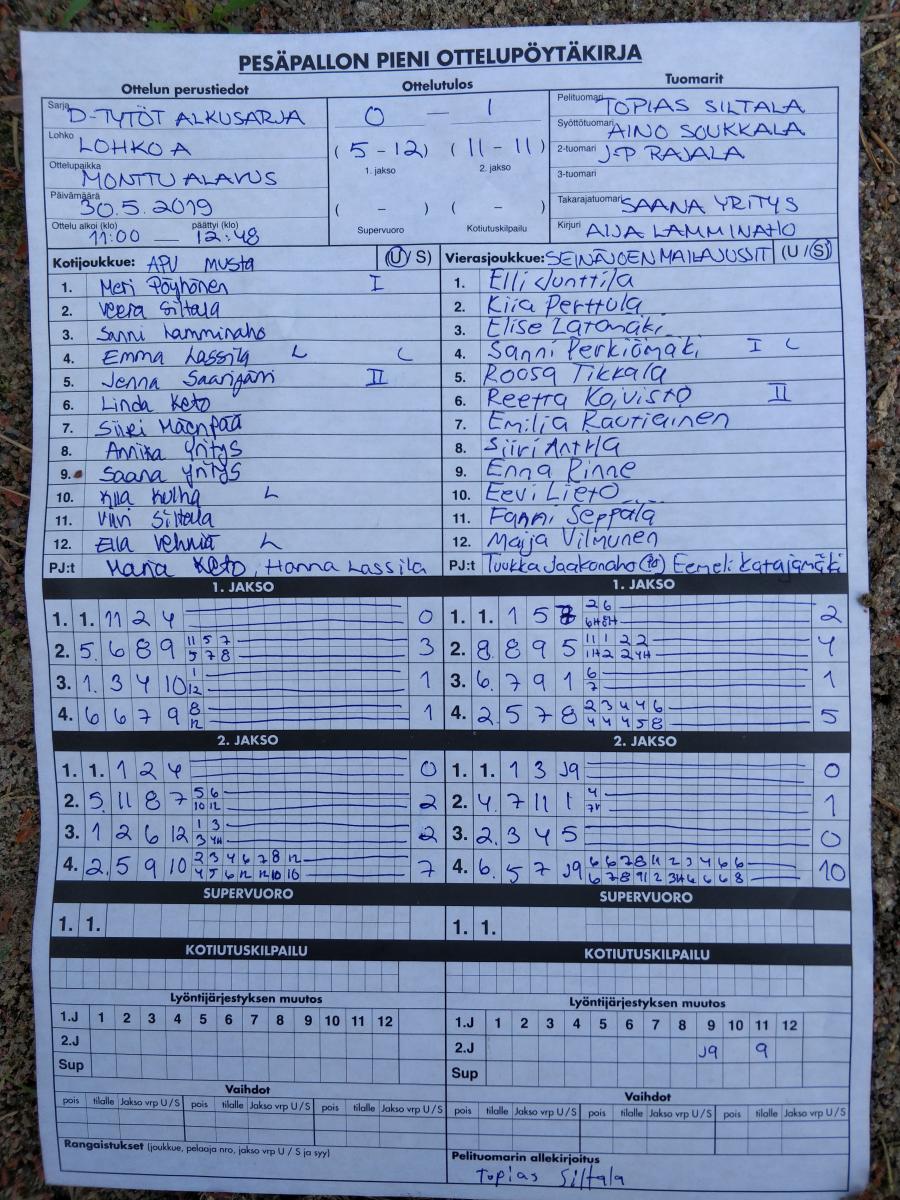 PESÄPALLON PIENI OTTELUPÖYTÄKIRJA
Ottelun perustiedot
Sarja D-TYTÖT ALKUSARJA
Lohko LOHKO A
Ottelupaikka MONTTU ALAVUS
Päivämäärä 30.5.2019
Ottelu alkoi (klo) päättyi (klo)
11:00 — 12:48
Ottelutulos
0 — 1
(5-12) (11-11)
1. jakso 2. jakso
( - ) ( - )
Supervuoro Kotiutuskilpailu
Tuomarit
Pelituomari TOPIAS SILTALA
Syöttötuomari AINO SOUKKALA
2-tuomari J-P RAJALA
3-tuomari
Takarajatuomari SAANA YRITYS
Kirjuri AIJA LAMMINAHO
Kotijoukkue: APU MUSTA (U/S)
1. Meri Pöyhönen I
2. Veera Siltala
3. Sanni Lamminaho
4. Emma Lassila L C
5. Jenna Saarijärvi II
6. Linda Keto
7. Siiri Mäenpää
8. Annika Yritys
9. Saana Yritys
10. Kiia Kulha L
11. Viivi Siltala
12. Ella L
PJ:t Marja Keto, Hanna Lassila
Vierasjoukkue: SEINÄJOEN MAILAJUSSIT (U/S)
1. Elli Junttila
2. Kiia Perttula
3. Elise Latomäki
4. Sanni Perkiömäki I C
5. Roosa Tikkala
6. Reetta Koivisto II
7. Emilia Rautiainen
8. Siiri Anttila
9. Enna Rinne
10. Eevi Lieto
11. Fanni Seppälä
12. Maija Vilmunen
PJ:t Tuukka Jaakonaho Eemeli Katajamäki
1. JAKSO
1. 1. 11 2 4 0
2. 5 6 8 9 11 5 7 3
5 7 8
3. 1 3 4 10 1 1
12
4. 6 6 7 9 8 1
12
1. JAKSO
1. 1. 1 5 2 6 2
6H 8H
2. 8 8 9 5 11 1 2 2 4
1H 2 2 4H
3. 6 7 9 1 6 1
7
4. 2 5 7 8 2 3 4 4 6 5
4 4 4 5 8
2. JAKSO
1. 1. 1 2 4 0
2. 5 11 8 7 5 6 2
10 12
3. 1 2 6 12 1 3 2
3 4H
4. 2 5 9 10 2 3 4 6 7 8 12 7
4 5 6 12 12 10 10
2. JAKSO
1. 1. 1 3 J9 0
2. 4 7 11 1 4 1
3. 2 3 4 5 0
4. 6 5 7 J9 6 6 7 8 11 2 3 4 6 6 10
6 7 8 11 2 3H 6 6 6 8
SUPERVUORO
1. 1.
SUPERVUORO
1. 1.
KOTIUTUSKILPAILU
KOTIUTUSKILPAILU
Lyöntijärjestyksen muutos
1.J 1 2 3 4 5 6 7 8 9 10 11 12
2.J
Sup
Lyöntijärjestyksen muutos
1.J 1 2 3 4 5 6 7 8 9 10 11 12
2.J J9 9
Sup
Vaihdot
pois tilalle Jakso vrp U/S pois tilalle Jakso vrp U/S pois tilalle Jakso vrp U/S
Vaihdot
pois tilalle Jakso vrp U/S pois tilalle Jakso vrp U/S pois tilalle Jakso vrp U/S
Rangaistukset (joukkue, pelaaja nro, jakso vrp U / S ja syy)
Pelituomarin allekirjoitus
Topias Siltala